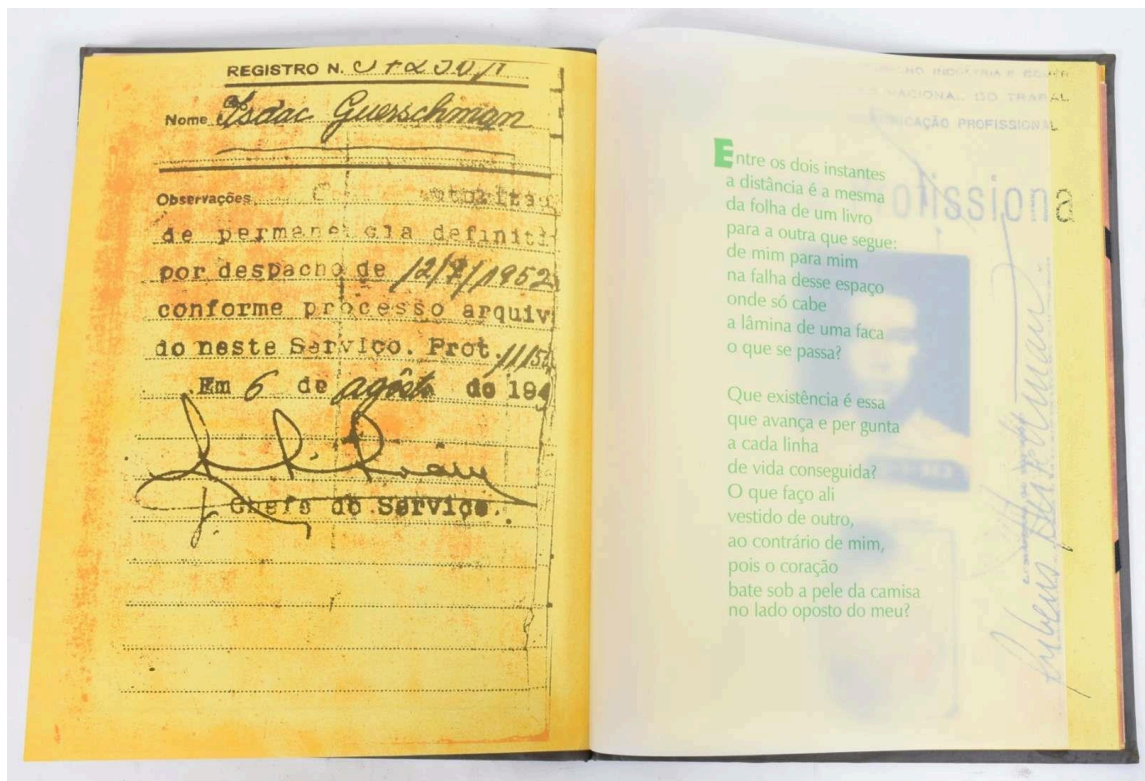 REGISTRO N.
Nome Isaac Guerschman
Observações
de permanencia definiti
por despacho de 12/7/1952
conforme processo arquiv
do neste Serviço. Prot.
Em 6 de agôsto de 194
Chefe do Serviço.
NACIONAL DO TRABAL
CAÇÃO PROFISSIONAL
ofissiona
Entre os dois instantes
a distância é a mesma
da folha de um livro
para a outra que segue:
de mim para mim
na falha desse espaço
onde só cabe
a lâmina de uma faca
o que se passa?
Que existência é essa
que avança e per gunta
a cada linha
de vida conseguida?
O que faço ali
vestido de outro,
ao contrário de mim,
pois o coração
bate sob a pele da camisa
no lado oposto do meu?
Rubens Guerschman